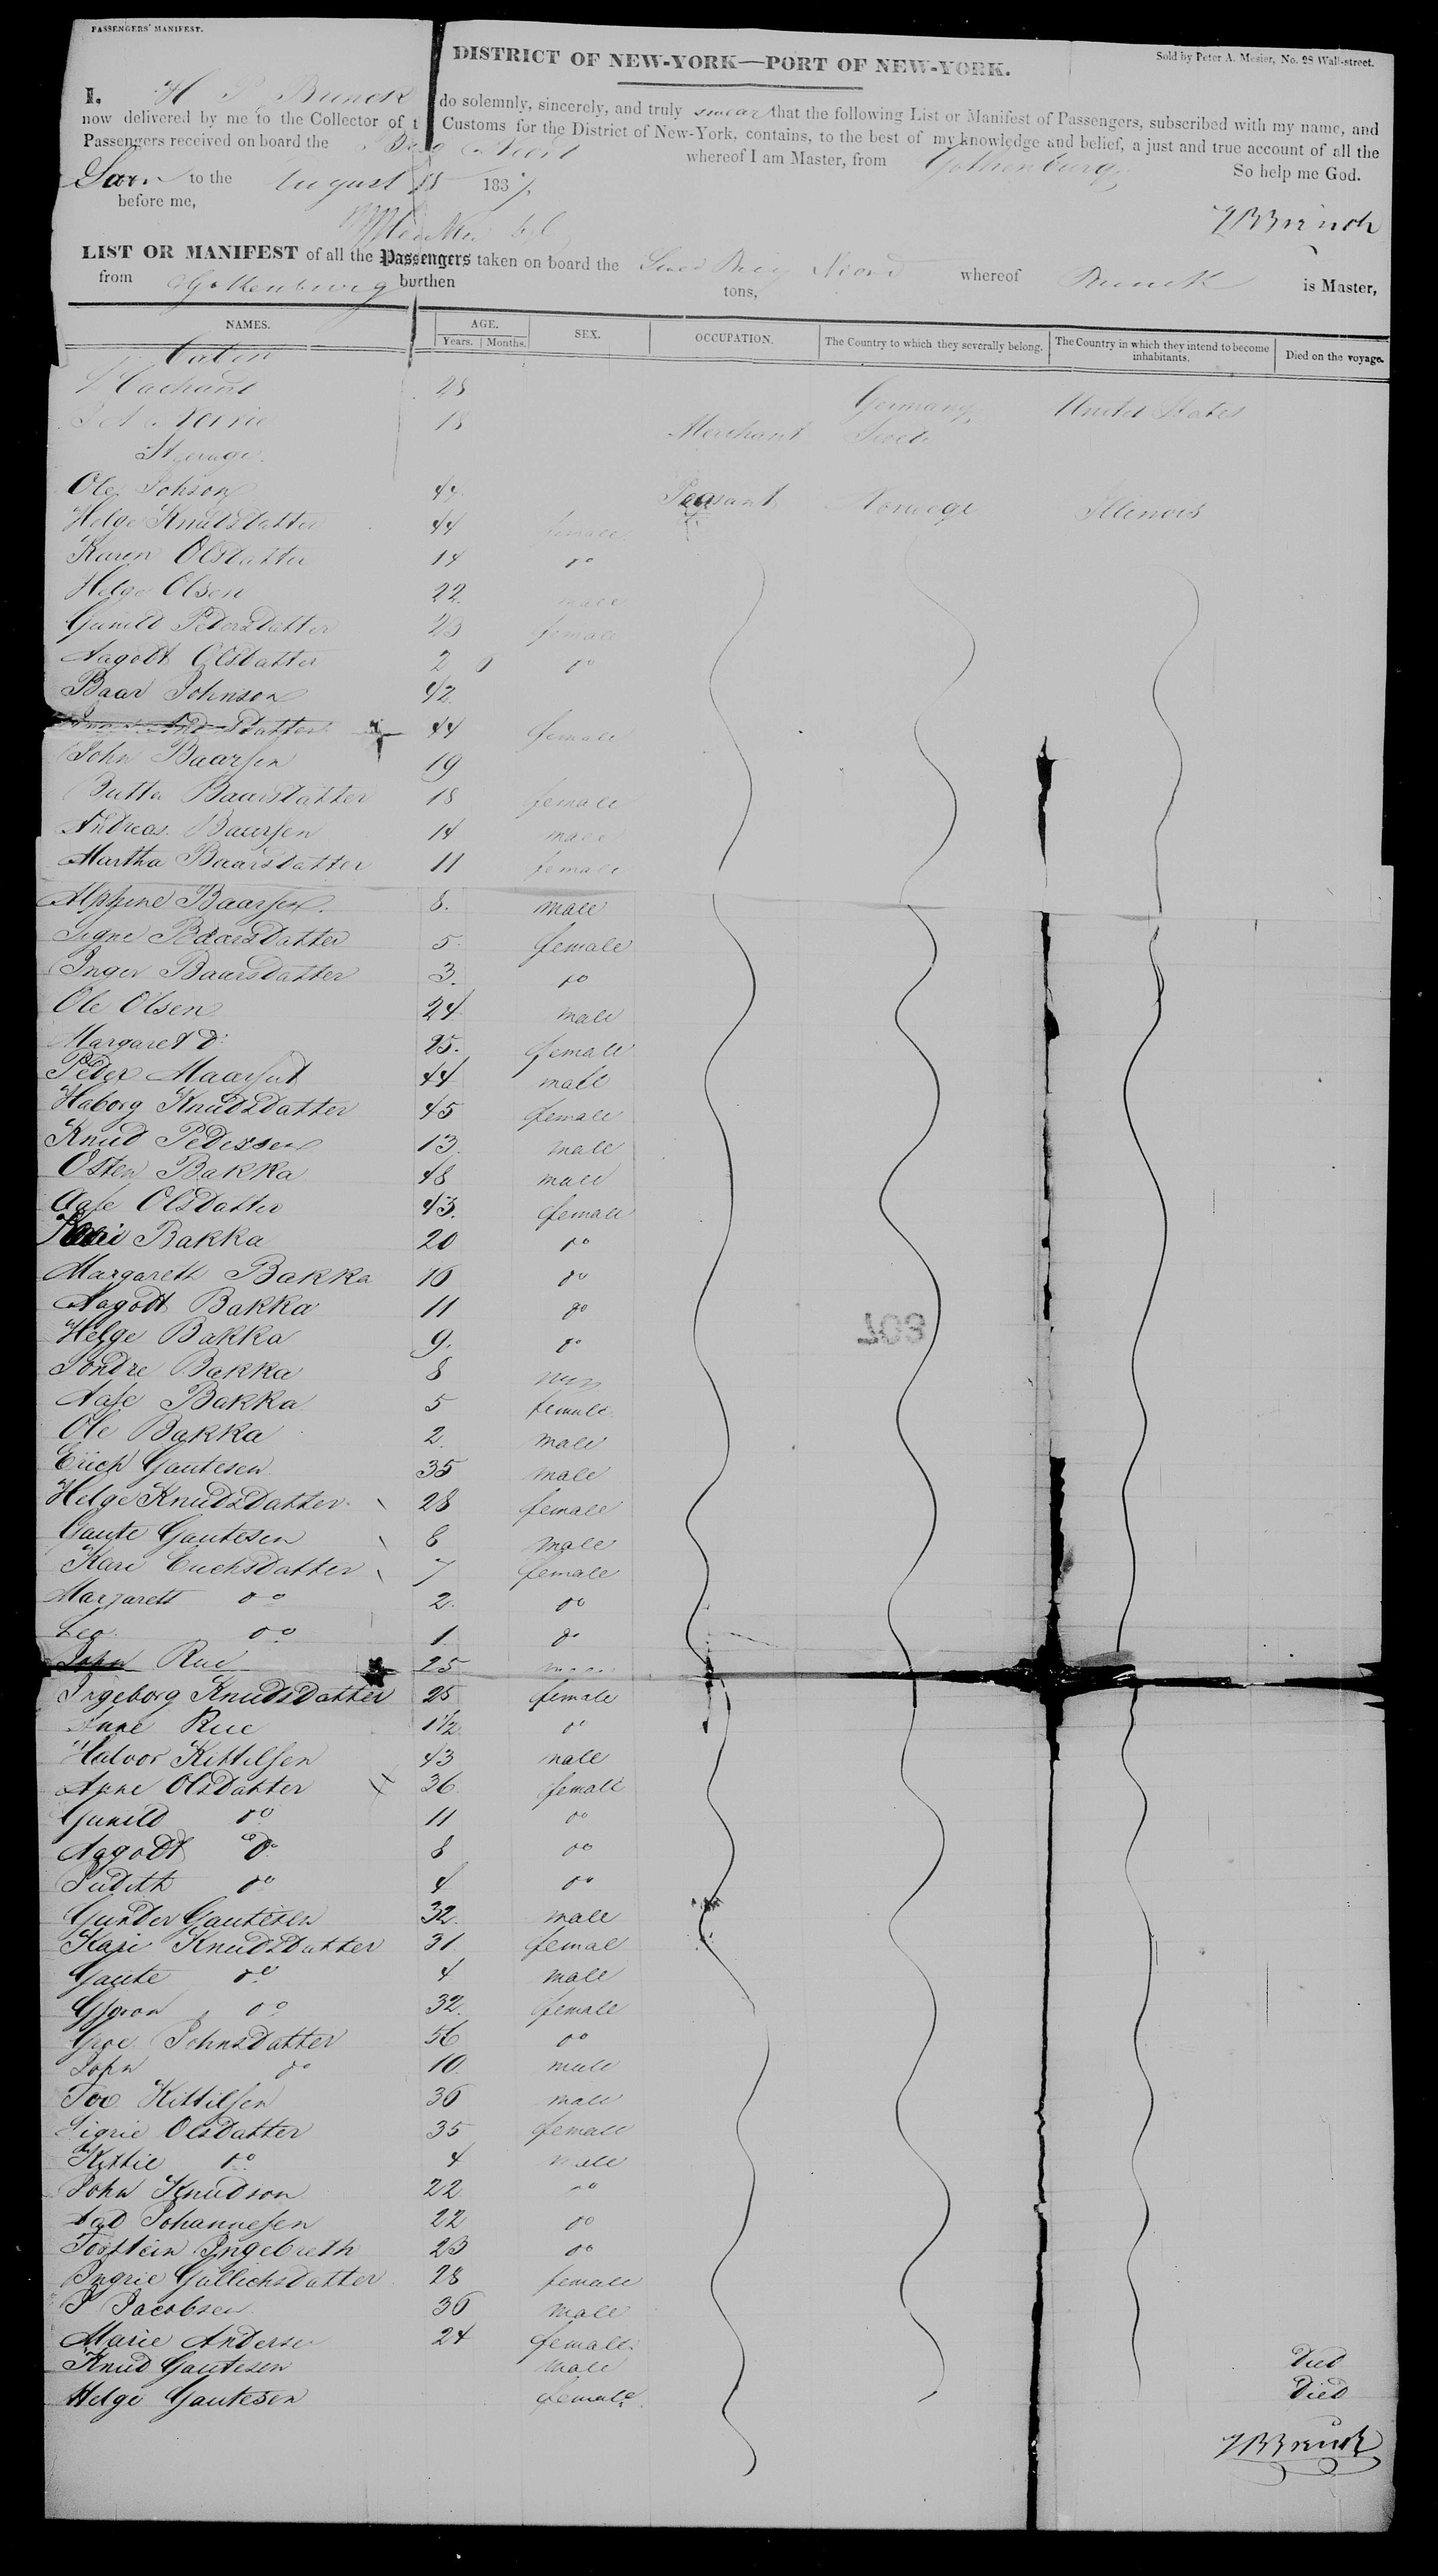 PASSENGERS' MANIFEST.
DISTRICT OF NEW-YORK—PORT OF NEW-YORK.
Sold by Peter A. Mesier, No. 28 Wall-street.
I, H P Brinck do solemnly, sincerely, and truly swear that the following List or Manifest of Passengers, subscribed with my name, and
now delivered by me to the Collector of t Customs for the District of New-York, contains, to the best of my knowledge and belief, a just and true account of all the
Passengers received on board the Brig Niord whereof I am Master, from Gothenburg
Sworn to the August 15 183 So help me God.
before me,
LIST OR MANIFEST of all the Passengers taken on board the Swed Brig Niord whereof is Master,
from Gothenburg burthen tons,
NAMES. AGE. SEX. OCCUPATION. The Country to which they severally belong. The Country in which they intend to become inhabitants. Died on the voyage.
Years. Months.
Cabin
28 Germany United States
18 Merchant
Steerage
Ole Johson 47 Peasant Norwege Illenois
Helge Knudsdatter 44 female
Karen Olsdatter 14 do
Helge Olsen 22 male
Gunild Pedersdatter 23 female
Aagodt Olsdatter 2 6 do
Baar Johnson 42
datter 44 female
John Baarsen 19
Baarsdatter 18 female
Andreas Baarsen 14 male
Martha Baarsdatter 11 female
Baarsen 8 male
Signe Baarsdatter 5 female
Inger Baarsdatter 3 do
Ole Olsen 24 male
Margaret do 25 female
Peder 44 male
Haborg Knudsdatter 45 female
Knud Pedersen 13 male
Osten Bakka 48 male
Aase Olsdatter 43 female
Kari Bakka 20 do
Margareth Bakka 16 do
Aagodt Bakka 11 do
Helge Bakka 9 do
Tondre Bakka 8
Aase Bakka 5 female
Ole Bakka 2 male
Erich Gautesen 35 male
Helge Knudsdatter 28 female
Gaute Gautesen 8 male
Kari Erichsdatter 7 female
Margarett do 2 do
do 1 do
John Rue 25
Ingeborg Knudsdatter 25 female
Anne Rue 1½ do
Halvor Kittilsen 43 male
Anne Olsdatter 36 female
Gunild do 11 do
Aagodt do 8 do
Judith do 4 do
Gunder Gautesen 32 male
Kari Knudsdatter 31 female
Gaute do 4 male
do 32 female
Groe Johnsdatter 56 do
John do 10 male
Tov Kittilsen 36 male
Sigrie Olsdatter 35 female
Kittil do 4 male
John Knudson 22 do
Johannesen 22 do
Torstein Ingebreth 23 do
Ingrie Gullichsdatter 28 female
Jacobsen 36 male
Marie Andersen 24 female
Knud Gautesen male Died
Helge Gautesen female Died